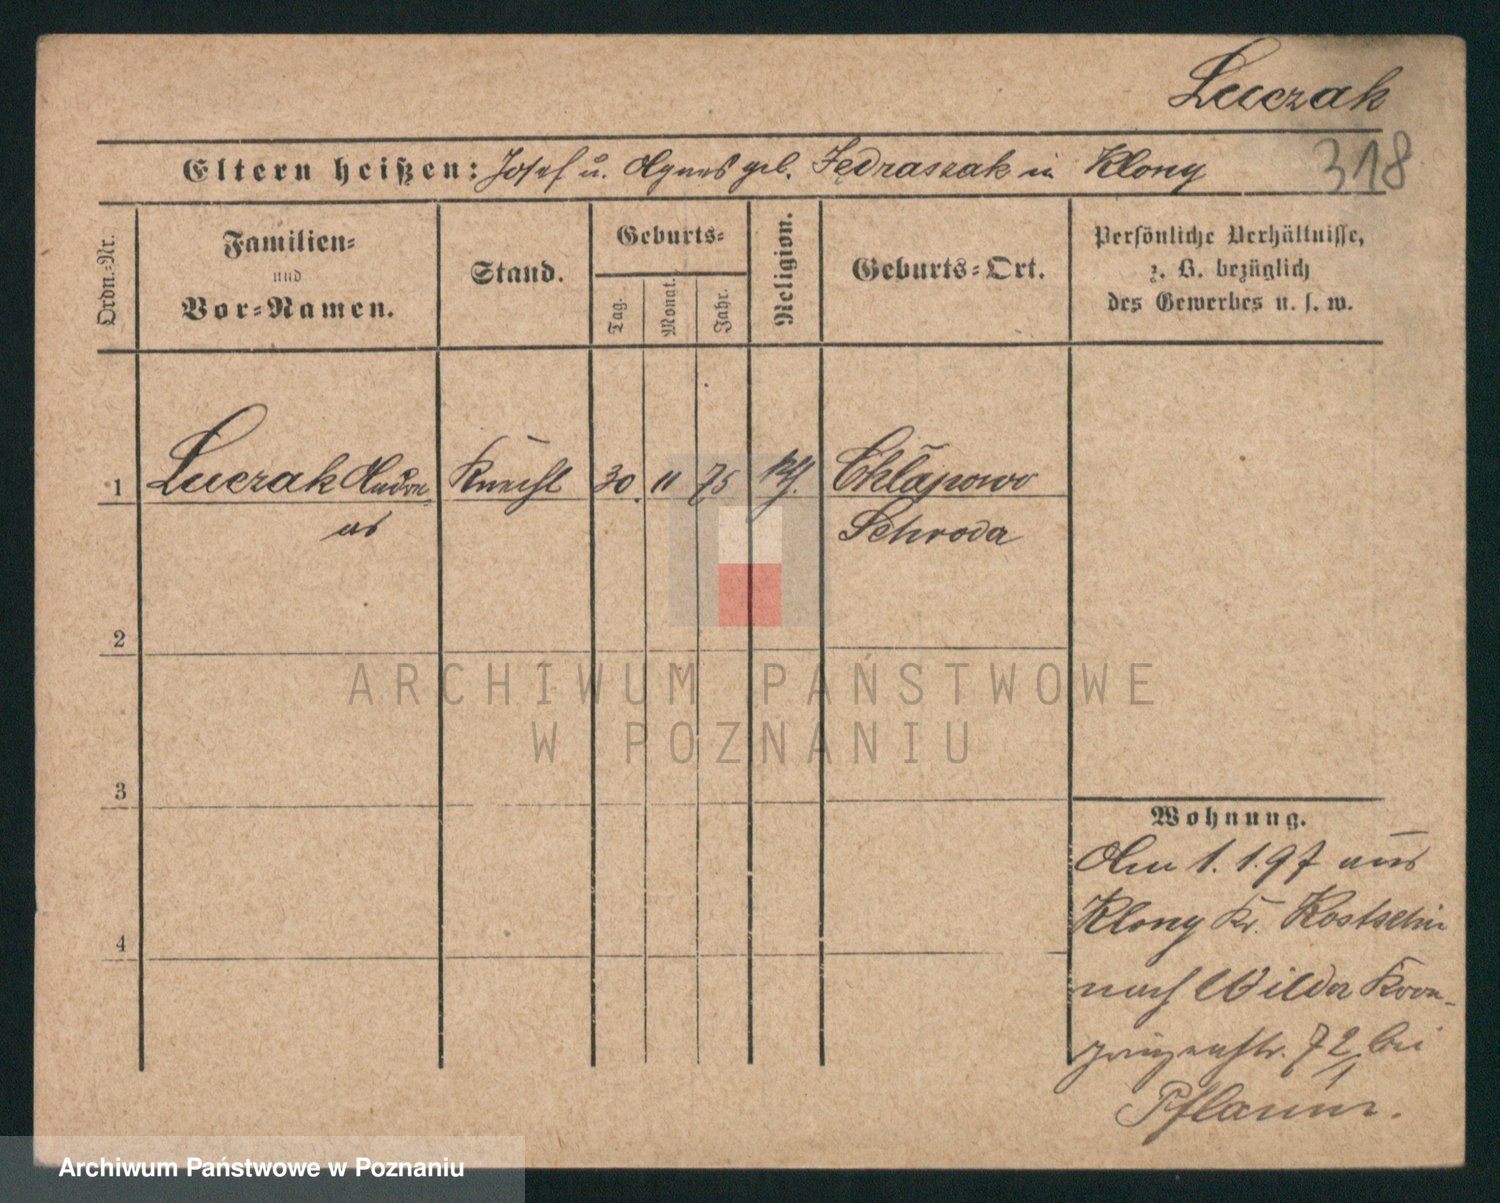 Luczak
318
Eltern heißen: Josef u. Agnes geb. Jędraszak in Klony
Ordn.-Nr.
Familien-
und
Vor-Namen.
Stand.
Geburts-
Tag.
Monat.
Jahr.
Religion.
Geburts-Ort.
Persönliche Verhältnisse,
z. B. bezüglich
des Gewerbes u. s. w.
1 Luczak Andre Knecht 30. 11 75 kth. Chlapowo
as Schroda
2
3
4
Wohnung.
Am 1.1.97 aus
Klony Kr. Kostschin
nach Wilda Kron-
prinzenstr. 72 bei
ARCHIWUM PAŃSTWOWE
W POZNANIU
Archiwum Państwowe w Poznaniu